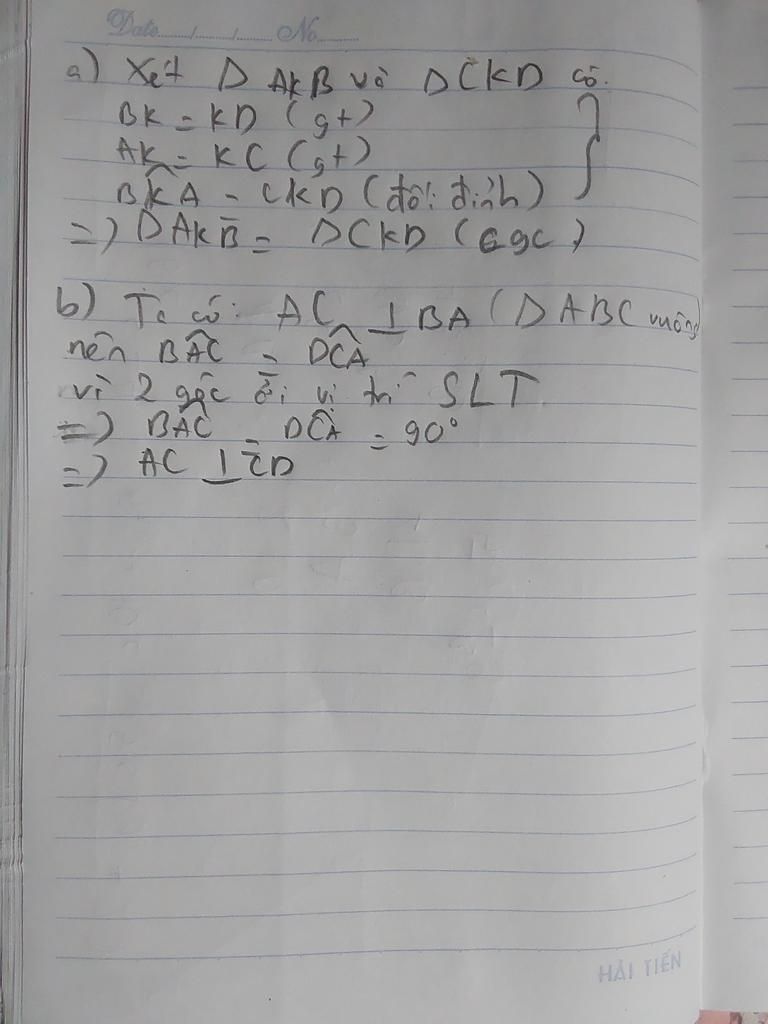 Date...../...../..... No.......
a) Xét Δ AKB và ΔCKD có.
BK = KD (gt)
AK = KC (gt)
BKA = CKD (đối đỉnh)
=) ΔAKB = ΔCKD (cgc)
b) Ta có: AC ⊥ BA (ΔABC vuông)
nên BAC = DCA
vì 2 góc ở vị trí SLT
=) BAC = DCA = 90°
=) AC ⊥ CD
HẢI TIẾN